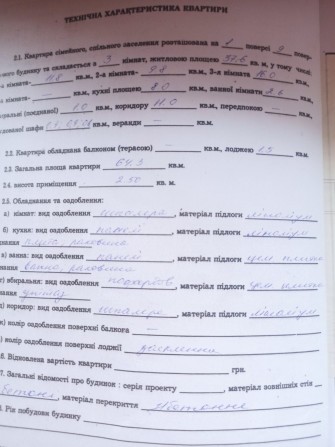 ТЕХНІЧНА ХАРАКТЕРИСТИКА КВАРТИРИ
2.1. Квартира сімейного, спільного заселення розташована на 1 поверсі 9 повер-
ного будинку та складається з 3 кімнат, житловою площею 37.6 кв. м, у тому числі:
1-а кімната 11.8 кв.м, 2-а кімната 9.8 кв.м, 3-я кімната 16.0 кв.м,
кімната — кв.м, кухні площею 8.0 кв.м, ванної кімнати 2.6 кв.м,
вбиральні (поєднаної) 1.0 кв.м, коридору 11.0 кв.м, передпокою — кв.м,
вбудовані шафи кв.м, веранди — кв.м.
2.2. Квартира обладнана балконом (терасою) — кв.м, лоджією 1.5 кв.м.
2.3. Загальна площа квартири 64.3 кв.м.
2.4. висота приміщення 2.50 кв. м.
2.5. Обладнання та оздоблення:
а) кімнат: вид оздоблення шпалера, матеріал підлоги лінолiум
б) кухня: вид оздоблення панелі, матеріал підлоги лінолiум
днання плита, раковина
в) ванна: вид оздоблення панелі, матеріал підлоги цем. плитка
днання ванна, раковина
г) вбиральня: вид оздоблення, матеріал підлоги цем. плитка
днання унітаз
д) коридор: вид оздоблення шпалера, матеріал підлоги лінолiум
е) колір оздоблення поверхні балкона —
колір оздоблення поверхні лоджії
2.6. Відновлена вартість квартири грн.
2.7. Загальні відомості про будинок : серія проекту, матеріал зовнішніх стін
бетонні, матеріал перекриття з/бетонне
2.8. Рік побудови будинку